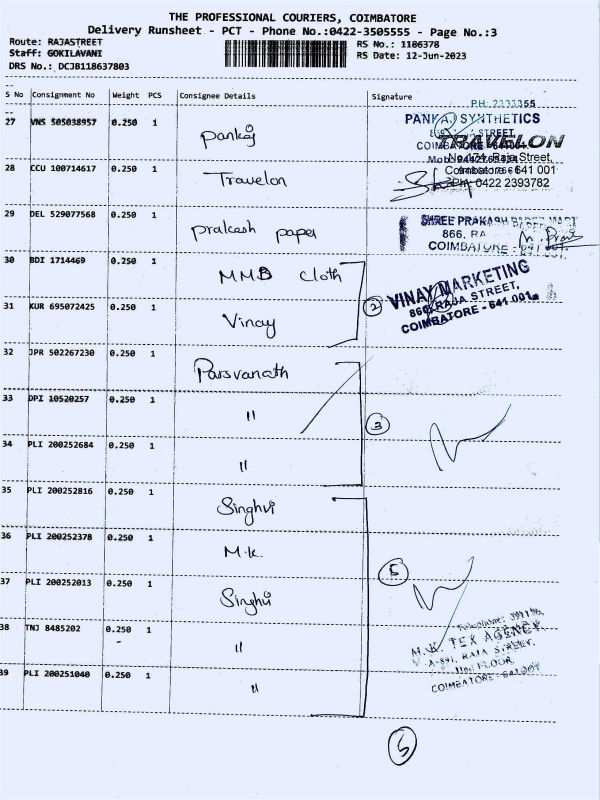 THE PROFESSIONAL COURIERS, COIMBATORE
Delivery Runsheet - PCT - Phone No.:0422-3505555 - Page No.:3
Route: RAJASTREET
Staff: GOKILAVANI
DRS No.: DCJB118637803
RS No.: 1186378
RS Date: 12-Jun-2023
S No Consignment No Weight PCS Consignee Details Signature
27 VNS 505038957 0.250 1 Pankaj
PH: 2333355
PANKAJ SYNTHETICS
STREET,
COIMBATORE - 641 001.
TRAVELON
No.174, Raja Street,
Coimbatore - 641 001
Ph: 0422 2393782
28 CCU 100714617 0.250 1 Travelon
29 DEL 529077568 0.250 1 prakash paper
SHREE PRAKASH PAPER MART
866, RA
COIMBATORE - 641 001.
30 BDI 1714469 0.250 1 MMB cloth
31 KUR 695072425 0.250 1 Vinay
2
VINAY MARKETING
866, RAJA STREET,
COIMBATORE - 641 001.
32 JPR 502267230 0.250 1 Parsvanath
33 DPI 10520257 0.250 1 "
3
34 PLI 200252684 0.250 1 "
35 PLI 200252816 0.250 1 Singhvi
36 PLI 200252378 0.250 1 M.K.
37 PLI 200252013 0.250 1 Singhvi
5
38 TNJ 8485202 0.250 1 "
39 PLI 200251040 0.250 1 "
Telephone:
M.K. TEX AGENCY
A-891, RAJA STREET,
FLOOR,
COIMBATORE - 641 001
5